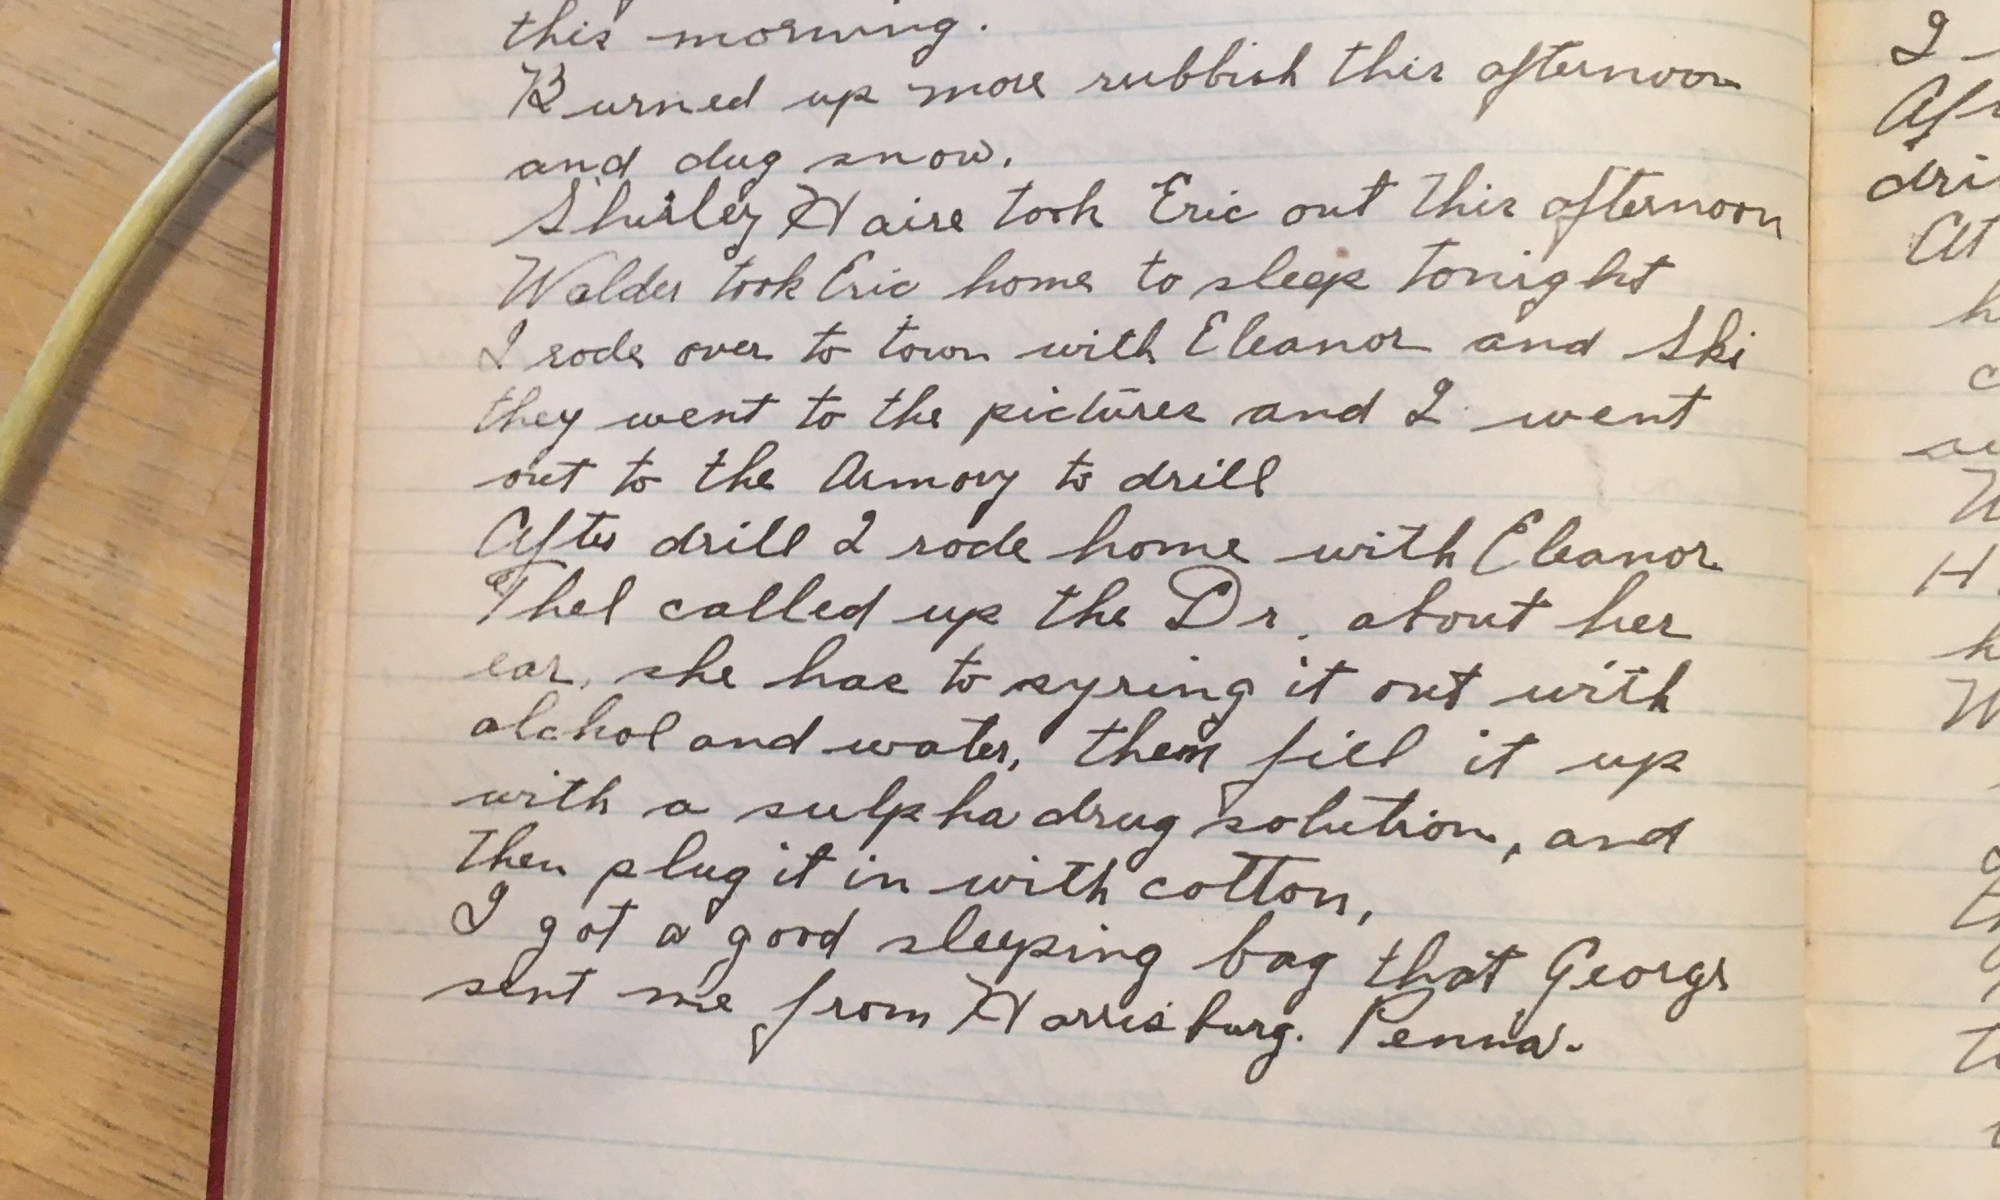 this morning.
Burned up more rubbish this afternoon
and dug snow.
Shirley Haire took Eric out this afternoon
Walder took Eric home to sleep tonight
I rode over to town with Eleanor and Ski
they went to the pictures and I went
out to the Armory to drill
After drill I rode home with Eleanor
Thel called up the Dr. about her
ear, she has to syring it out with
alchol and water, then fill it up
with a sulpha drug solution, and
then plug it in with cotton,
I got a good sleeping bag that George
sent me from Harrisburg. Penna.
I
At